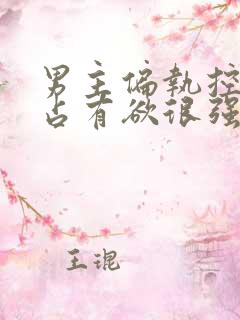 男主偏執控
占有欲很强
王琨